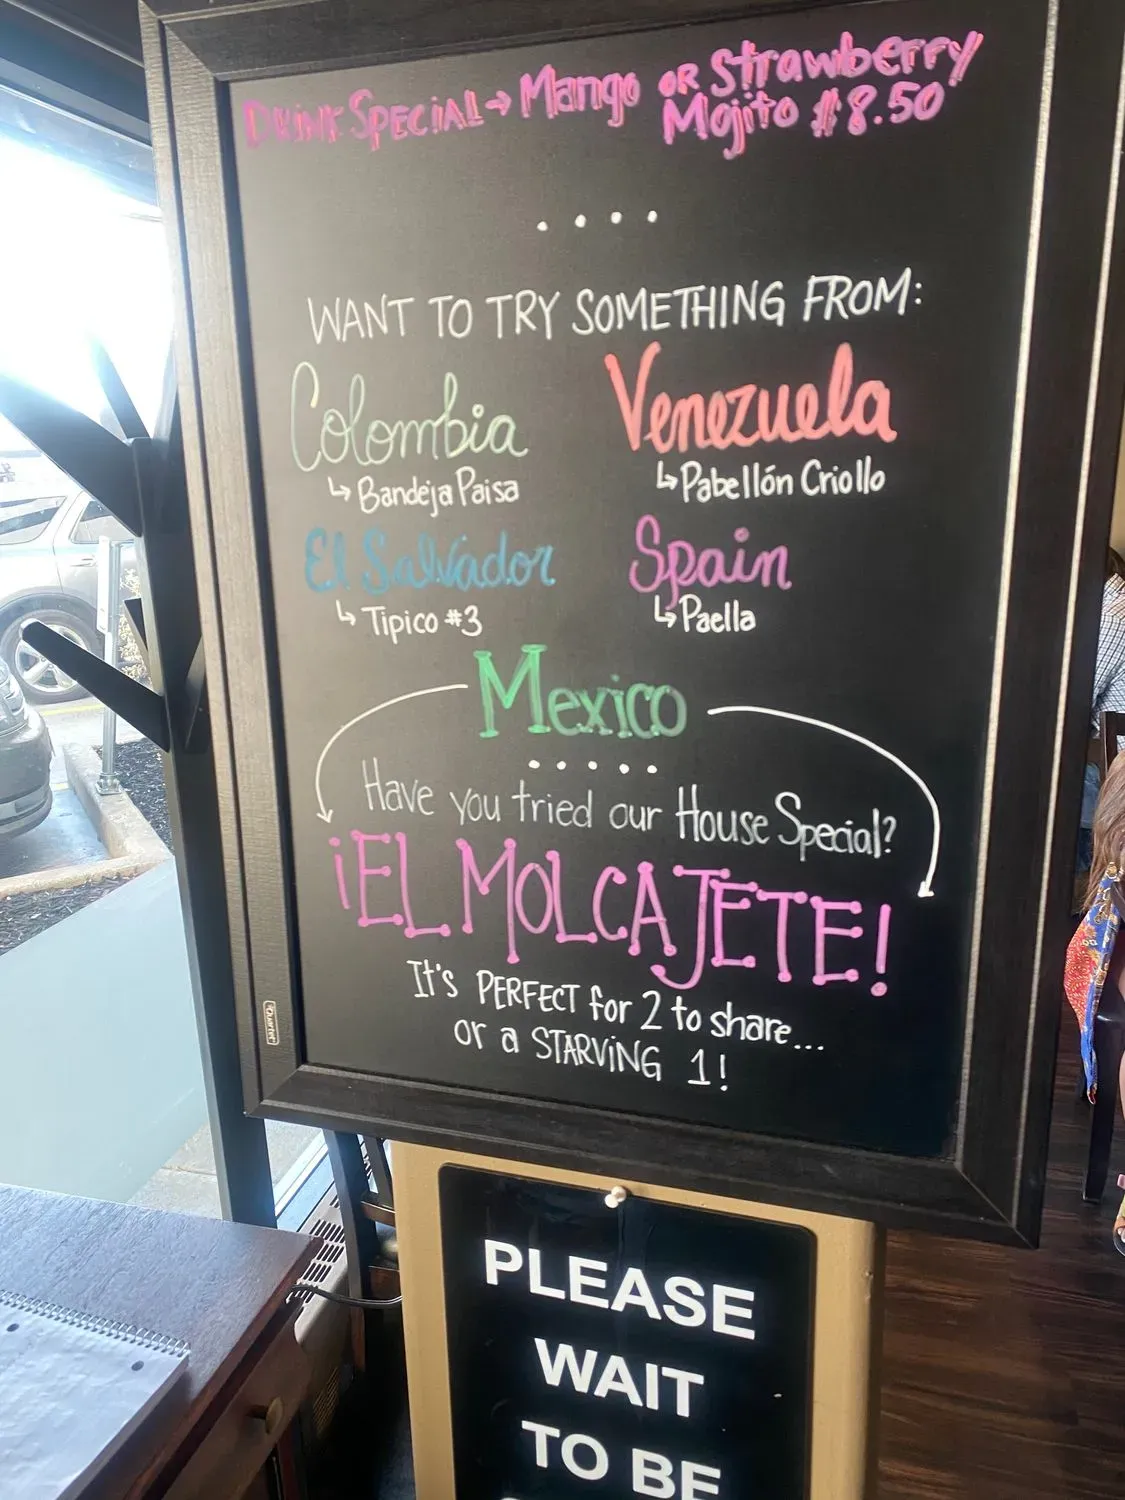 DRINK SPECIAL → Mango OR Strawberry
Mojito $8.50
WANT TO TRY SOMETHING FROM:
Colombia
↳ Bandeja Paisa
Venezuela
↳ Pabellón Criollo
El Salvador
↳ Tipico #3
Spain
↳ Paella
Mexico
Have you tried our House Special?
¡EL MOLCAJETE!
It's PERFECT for 2 to share...
or a STARVING 1!
Quartet
PLEASE
WAIT
TO BE